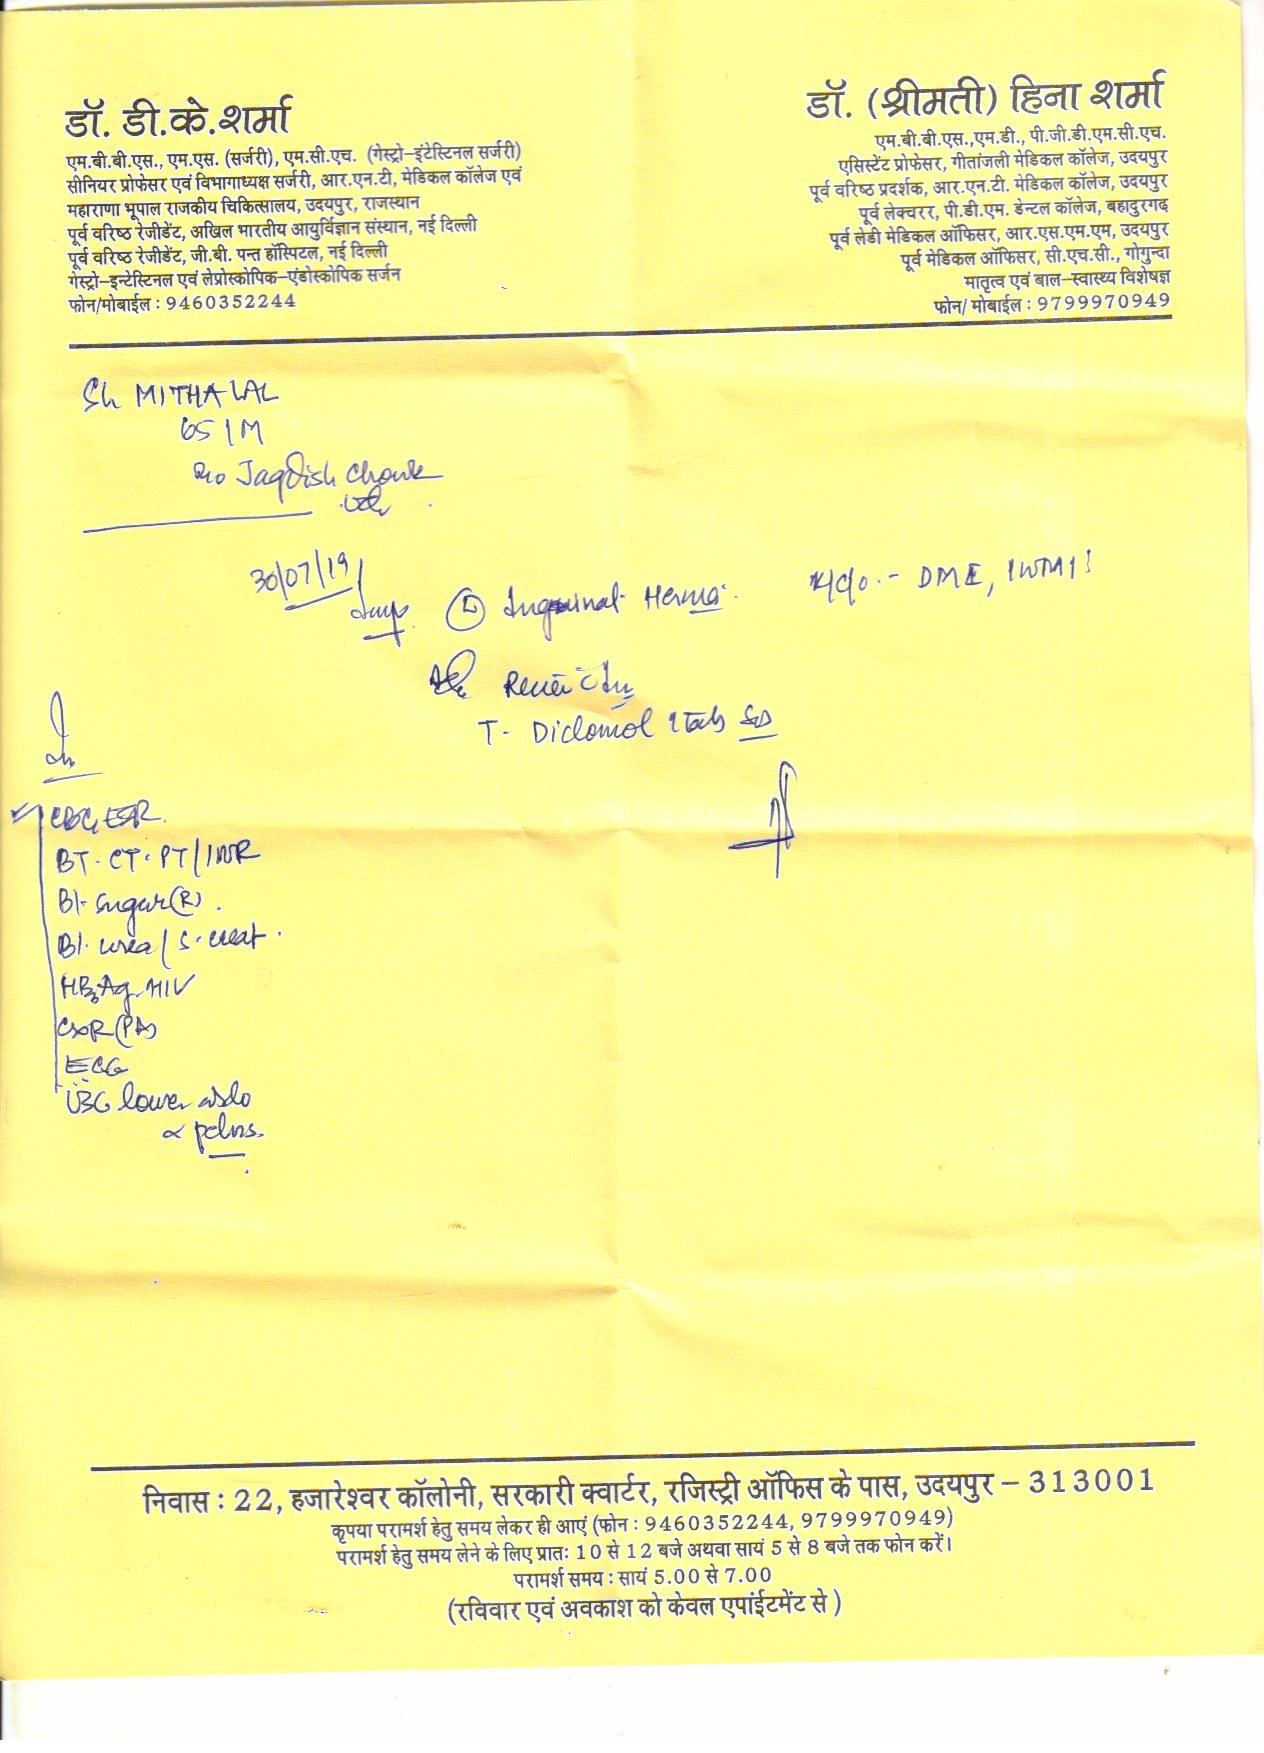 डॉ. डी.के.शर्मा
एम.बी.बी.एस., एम.एस. (सर्जरी), एम.सी.एच. (गेस्ट्रो–इंटेस्टिनल सर्जरी)
सीनियर प्रोफेसर एवं विभागाध्यक्ष सर्जरी, आर.एन.टी, मेडिकल कॉलेज एवं
महाराणा भूपाल राजकीय चिकित्सालय, उदयपुर, राजस्थान
पूर्व वरिष्ठ रेजीडेंट, अखिल भारतीय आयुर्विज्ञान संस्थान, नई दिल्ली
पूर्व वरिष्ठ रेजीडेंट, जी.बी. पन्त हॉस्पिटल, नई दिल्ली
गेस्ट्रो–इन्टेस्टिनल एवं लेप्रोस्कोपिक–एंडोस्कोपिक सर्जन
फोन/मोबाईल : 9460352244
डॉ. (श्रीमती) हिना शर्मा
एम.बी.बी.एस.,एम.डी., पी.जी.डी.एम.सी.एच.
एसिस्टेंट प्रोफेसर, गीतांजली मेडिकल कॉलेज, उदयपुर
पूर्व वरिष्ठ प्रदर्शक, आर.एन.टी. मेडिकल कॉलेज, उदयपुर
पूर्व लेक्चरर, पी.डी.एम. डेन्टल कॉलेज, बहादुरगढ़
पूर्व लेडी मेडिकल ऑफिसर, आर.एस.एम.एम, उदयपुर
पूर्व मेडिकल ऑफिसर, सी.एच.सी., गोगुन्दा
मातृत्व एवं बाल–स्वास्थ्य विशेषज्ञ
फोन/ मोबाईल : 9799970949
Sh MITHALAL
65/M
R/o Jagdish Chowk
30/07/19
Inguinal Hernia
K/c/o - DM
T- Diclomol 1 tab
CBC, ESR
BT- CT- PT/INR
Bl- Sugar(R).
Bl- urea/S-creat.
HBsAg HIV
CXR (PA)
ECG
USG lower abdo
pelvis.
निवास : 22, हजारेश्वर कॉलोनी, सरकारी क्वार्टर, रजिस्ट्री ऑफिस के पास, उदयपुर – 313001
कृपया परामर्श हेतु समय लेकर ही आएं (फोन : 9460352244, 9799970949)
परामर्श हेतु समय लेने के लिए प्रातः 10 से 12 बजे अथवा सायं 5 से 8 बजे तक फोन करें।
परामर्श समय : सायं 5.00 से 7.00
(रविवार एवं अवकाश को केवल एपांईटमेंट से )